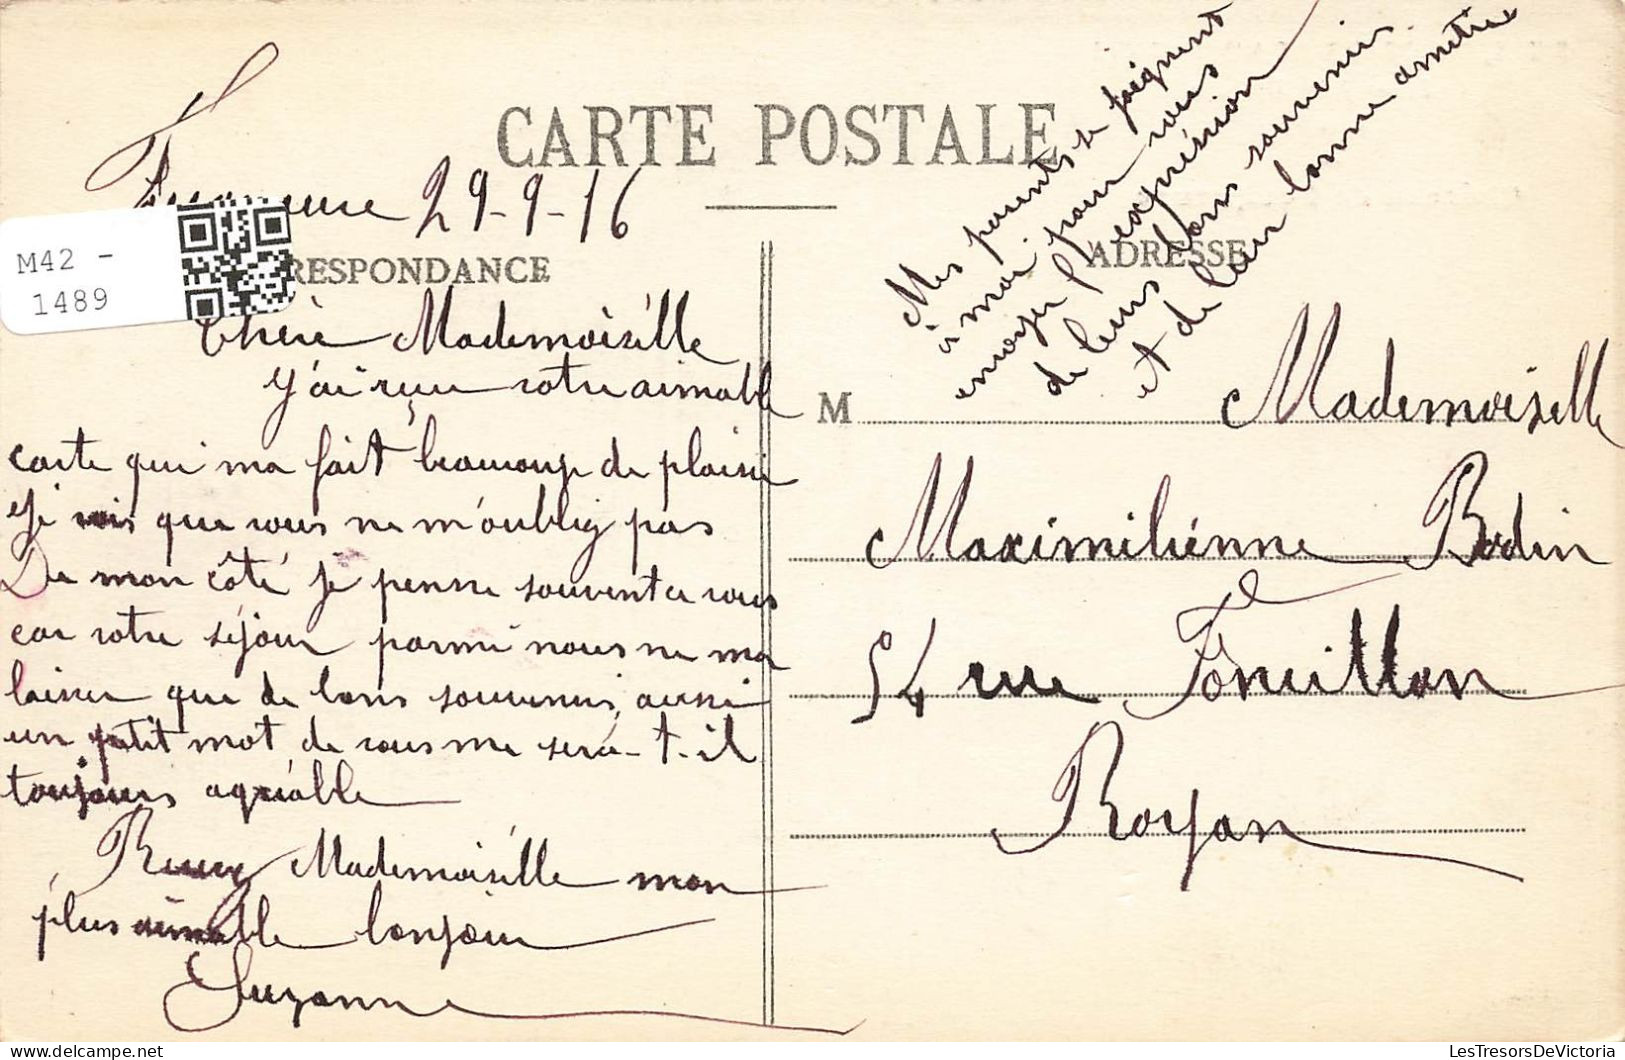 CARTE POSTALE
29-9-16
M42 -
1489
RESPONDANCE
Chère Mademoiselle
J'ai reçu votre aimable
carte qui ma fait beaucoup de plaisir
Je vois que vous ne m'oubliez pas
De mon côté je pense souvent a vous
car votre séjour parmi nous ne ma
laisser que de bons souvenirs, aussi
un petit mot de vous me sera-t-il
toujours agréable
Recevez Mademoiselle mon
plus aimable bonjour
Suzanne
Mes parents se joignent
à moi pour vous
envoyer l'expréssion
de leurs bons souvenirs
et de leur bonne amitié
ADRESSE
M Mademoiselle
Maximiliénne Bodin
54 rue Foncillon
Royan
LesTresorsDeVictoria